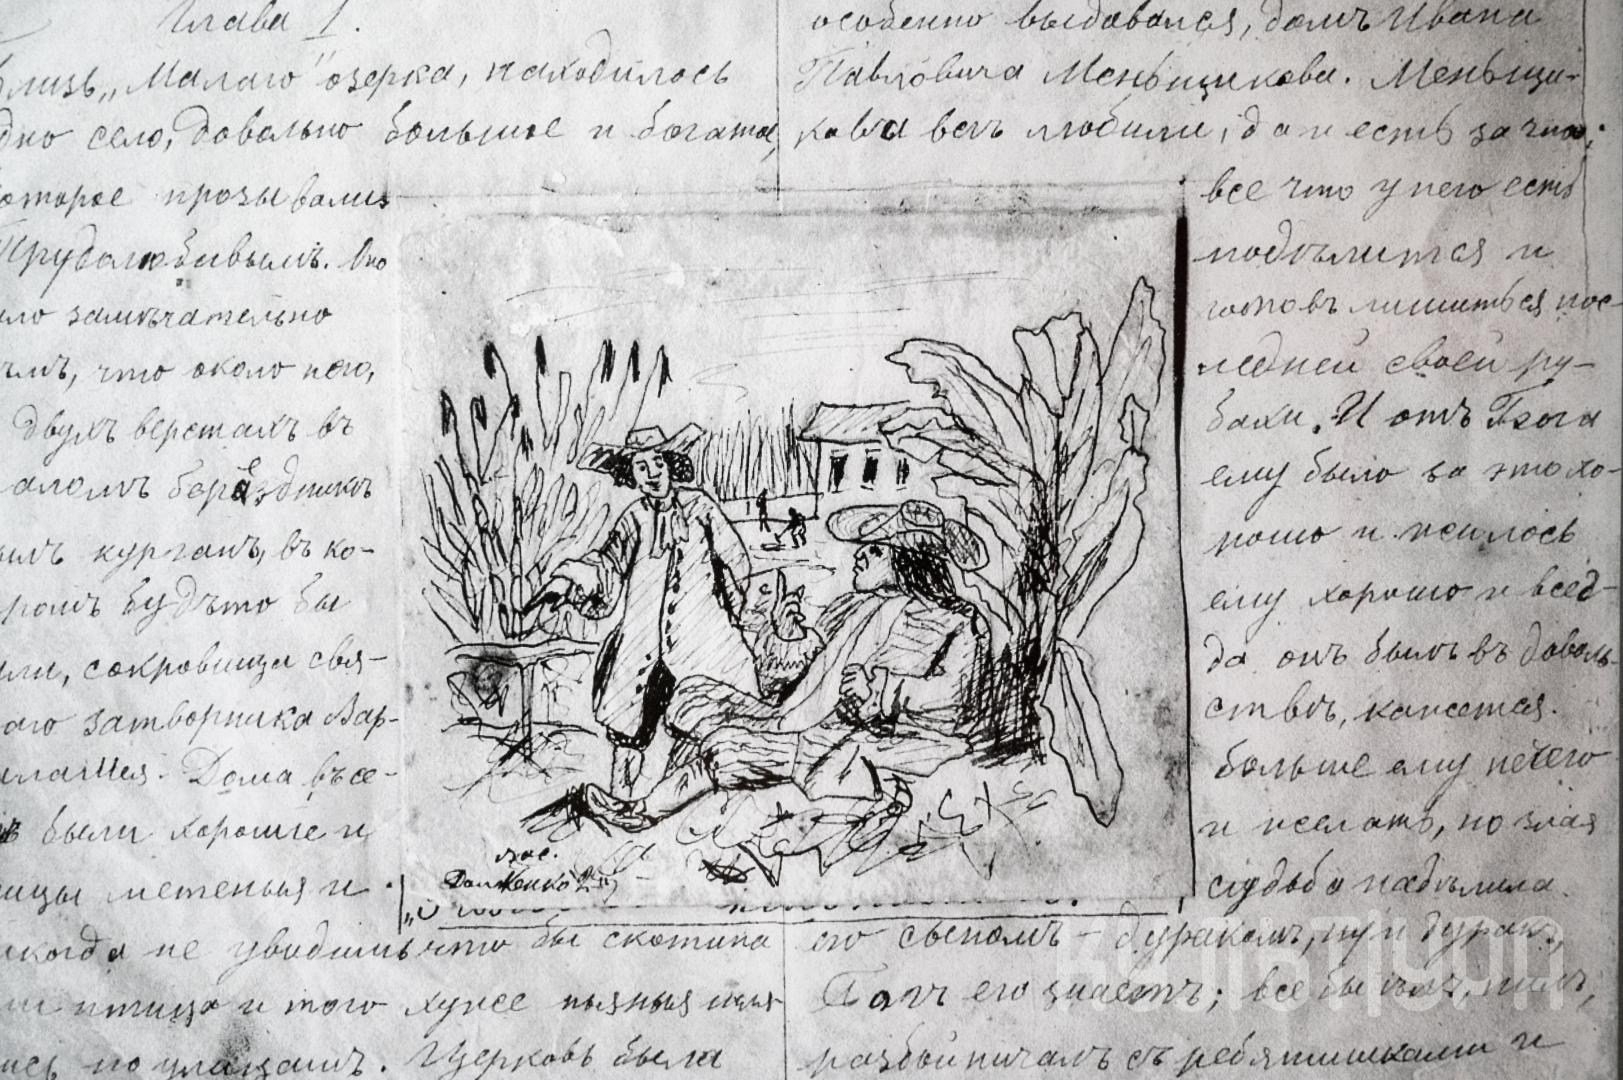 Глава 1.
близъ „Малаго" озерка, находилось
дно село, довольно большое и богатое,
которое прозывались
Трудолюбивымъ. Оно
ыло замѣчательно
тѣмъ, что около него,
двухъ верстахъ въ
маломъ
ылъ курганъ, въ ко-
ромъ будѣто бы
ыли, сокровища свя-
того затворника Вар-
лаамія. Дома въ се-
лѣ были хорошіе и
лицы метеныя и
икогда не увидишь что бы скотина
или птица и того хуже пьяныя шля-
лись по улицамъ. Церковь была
вас.
Долженко
особенно выдавался, домъ Ивана
Павловича Меньщикова. Меньщи-
кова всѣ любили, да и есть за что:
все что у него есть
подѣлится и
готовъ лишиться пос-
ледней своей ру-
бахи. И отъ Бога
ему было за это хо-
рошо и жилось
ему хорошо и всег-
да онъ былъ въ доволь-
ствѣ, кажется.
больше ему нечего
и желать, но злая
судьба надѣлила
его сыномъ – дуракомъ, ну и дурак,
Богъ его знаетъ; все бы ѣлъ, пилъ,
разбойничалъ съ ребятишками и
КУЛЬТУРА